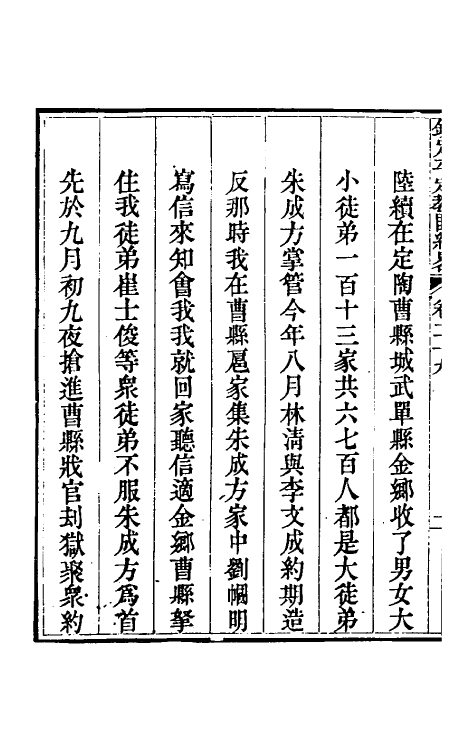 欽定平定教匪紀略 卷二十九 二
陸續在定陶曹縣城武單縣金鄉收了男女大
小徒弟一百十三家共六七百人都是大徒弟
朱成方掌管今年八月林清與李文成約期造
反那時我在曹縣扈家集朱成方家中劉幗明
寫信來知會我我就回家聽信適金鄉曹縣拏
住我徒弟崔士俊等眾徒弟不服朱成方爲首
先於九月初九夜搶進曹縣戕官刦獄聚衆約